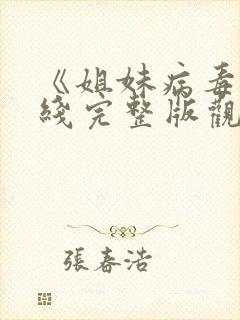 《姐妹病毒
綫完整版觀
張春浩